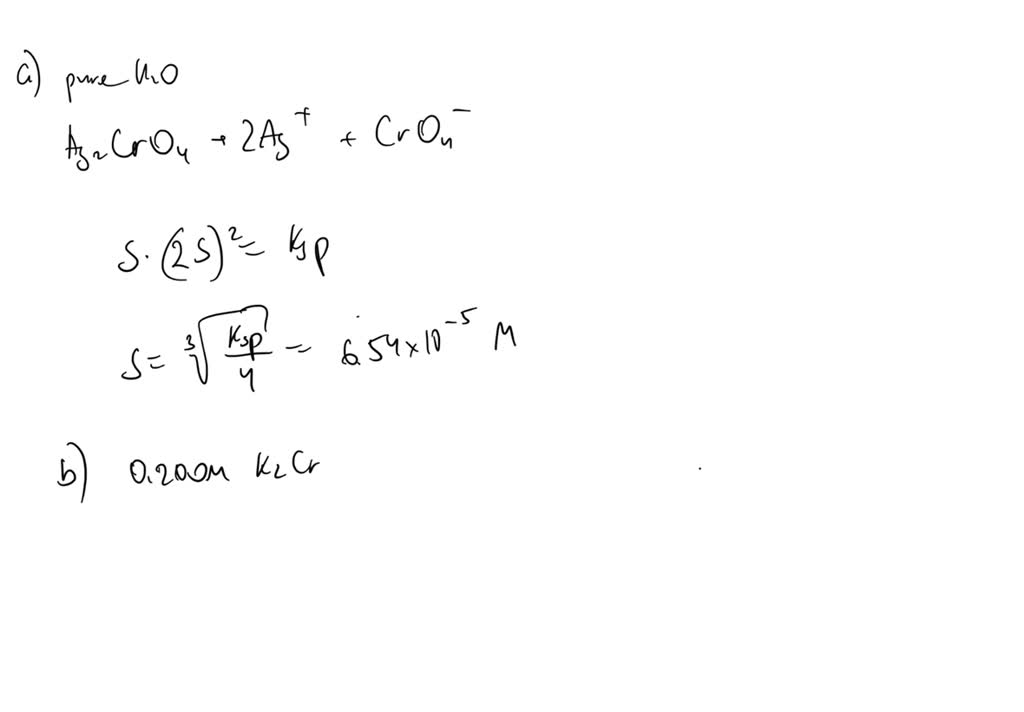 a) pure H₂O
Ag₂CrO₄ → 2Ag⁺ + CrO₄⁻
S · (2S)² = Ksp
S = ∛(Ksp/4) = 6.54 × 10⁻⁵ M
b) 0.200M K₂Cr